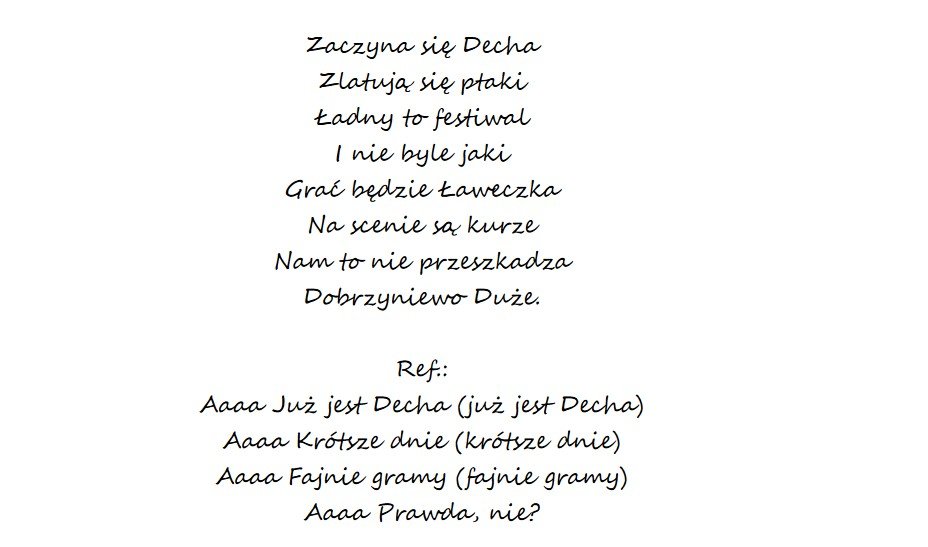 Zaczyna się Decha
Zlatują się ptaki
Ładny to festiwal
I nie byle jaki
Grać będzie Ławeczka
Na scenie są kurze
Nam to nie przeszkadza
Dobrzyniewo Duże.

Ref.:
Aaaa Już jest Decha (już jest Decha)
Aaaa Krótsze dnie (krótsze dnie)
Aaaa Fajnie gramy (fajnie gramy)
Aaaa Prawda, nie?